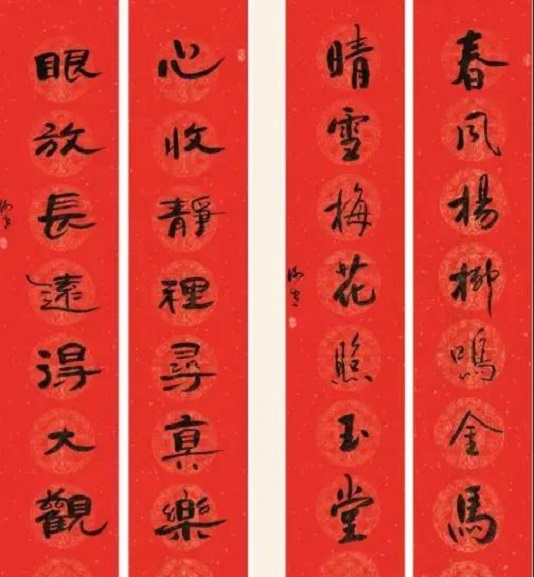 春风楊柳鳴金馬
晴雪梅花照玉堂
心收靜裡尋真樂
眼放長遠得大觀